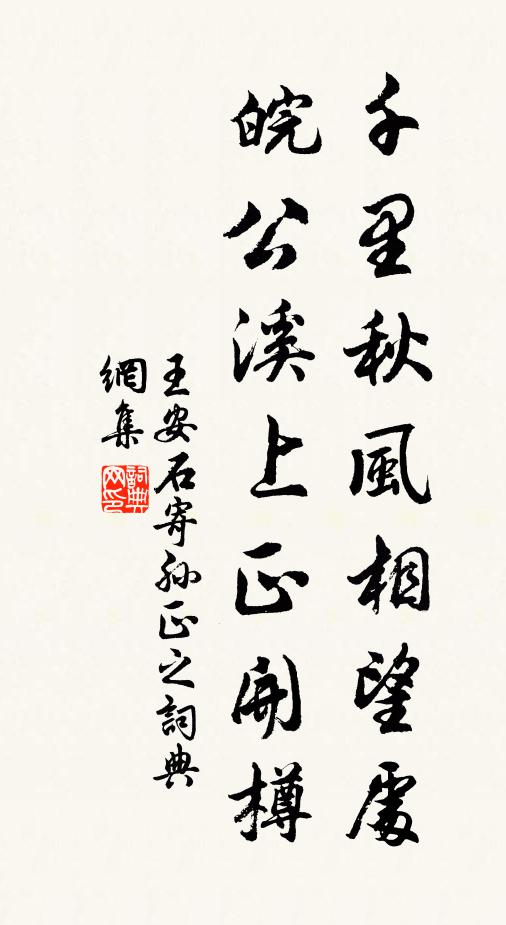 千里秋風相望處
皖公溪上正開樽
王安石寄孫正之詞典
網集
詞典網印